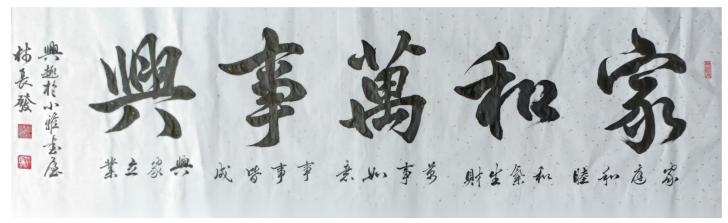 家和萬事興
家庭和睦 和氣生財 萬事如意 事事皆成 興家立業
興趣於小雅書屋
林長發